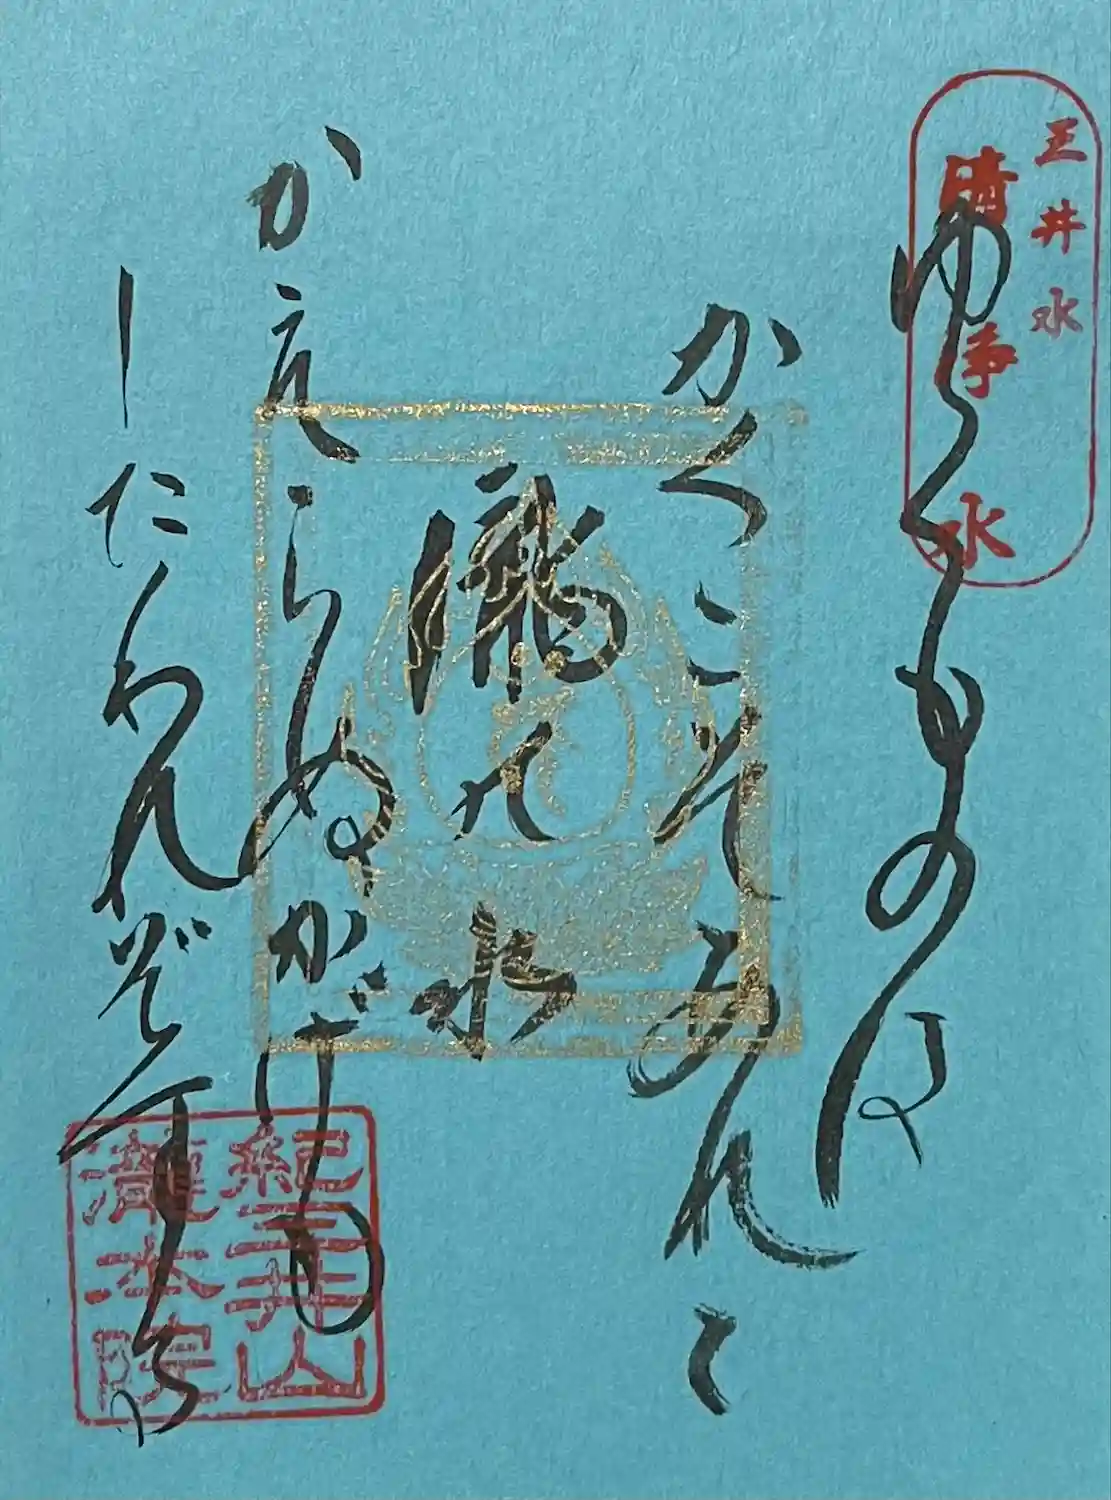 三井水
清浄水
ゆくものは
かくこそあれと
瀧の水
かえらぬかげも
したわれぞす
紀三井山
瀧本院